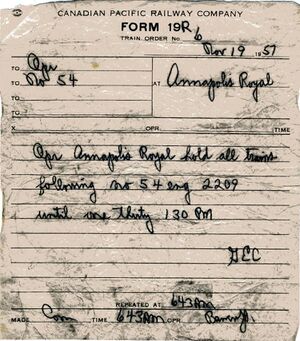 CANADIAN PACIFIC RAILWAY COMPANY
FORM 19R
TRAIN ORDER No. 6
Nov 19 1957
TO Opr
TO No 54 AT Annapolis Royal
TO
X OPR. TIME
Opr Annapolis Royal hold all trains
following no 54 eng 2209
until one thirty 130 PM
GEC
REPEATED AT 643AM
MADE Com TIME 643AM OPR.